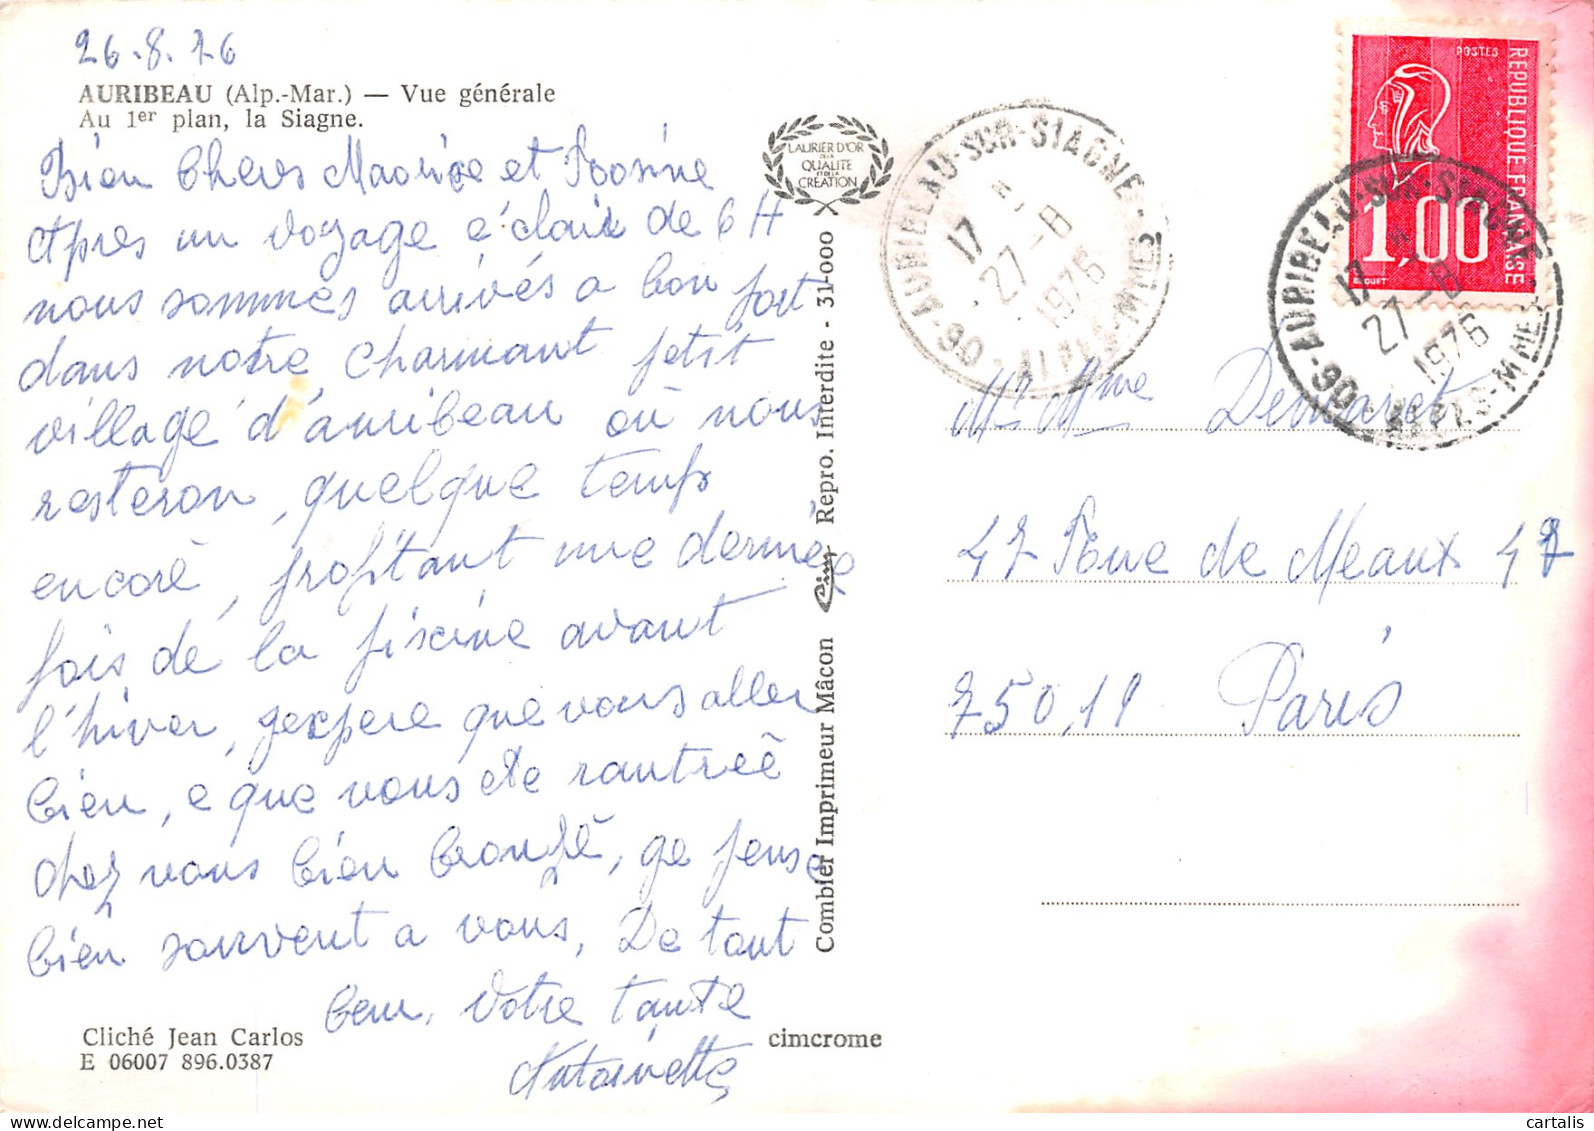 26.8.76
AURIBEAU (Alp.-Mar.) — Vue générale
Au 1er plan, la Siagne.
Bien Chers Maurice et Rosine
Après un voyage éclair de 6 H
nous sommes arrivés a bon fort
dans notre charmant petit
village d'auribeau où nous
resteron, quelque temps
encore, profitant une dernièe
fois de la piscine avant
l'hiver, gexpere que vous aller
bien, e que vous ete rantreé
chez vous bien bronzé, ge pense
bien souvent a vous, De tout
Ceur, Votre tante
Antoinette
Cliché Jean Carlos
E 06007 896.0387
cimcrome
LAURIER D'OR
DE LA
QUALITE
ET DE LA
CREATION
Combier Imprimeur Mâcon Cim Repro. Interdite - 31-000
06-AURIBEAU-SUR-SIAGNE-ALPES-MMES
17
27-8
1976
POSTES
REPUBLIQUE FRANÇAISE
1,00
06-AURIBEAU-SUR-SIAGNE-ALPES-MMES
17
27-8
1976
Mr Mme
47 Rue de Meaux 47
75019 Paris